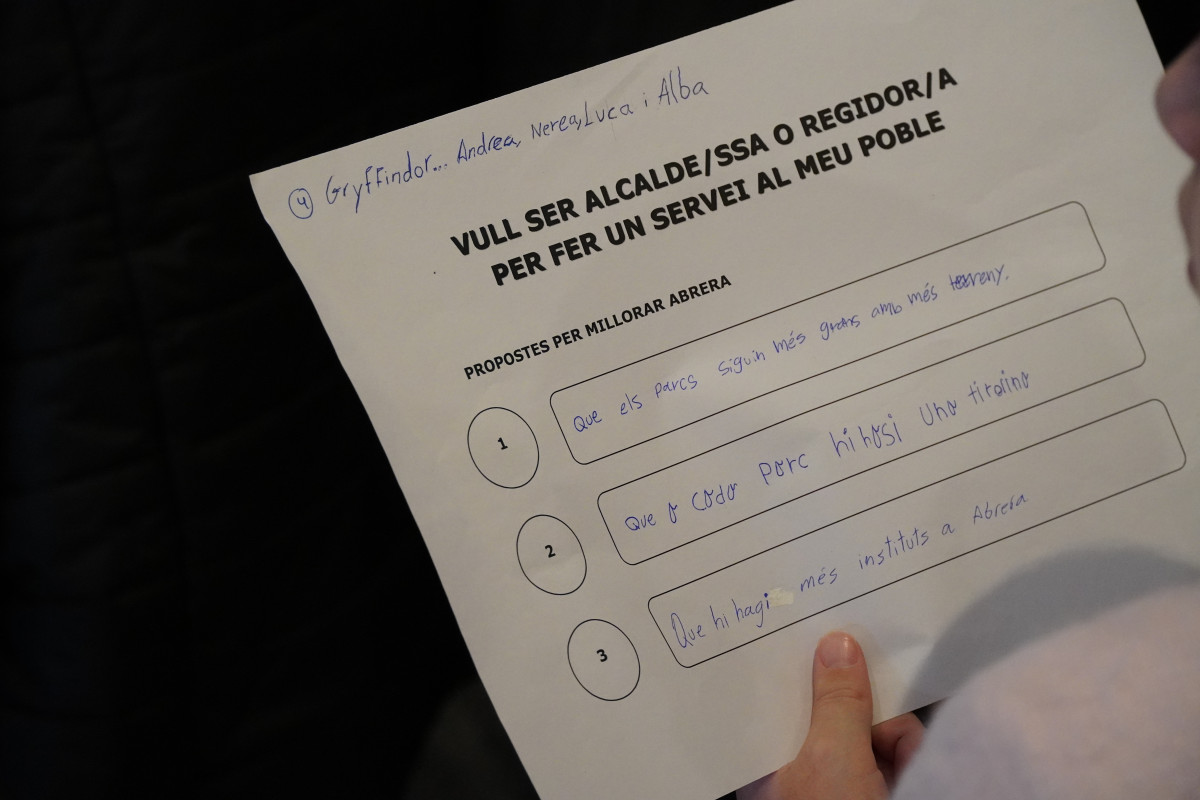 4 Gryffindor... Andrea, Nerea, Luca i Alba
VULL SER ALCALDE/SSA O REGIDOR/A
PER FER UN SERVEI AL MEU POBLE
PROPOSTES PER MILLORAR ABRERA
1 Que els parcs siguin més grans amb més terreny.
2 Que a cada parc hi hasi una tirolina
3 Que hi hagi més instituts a Abrera